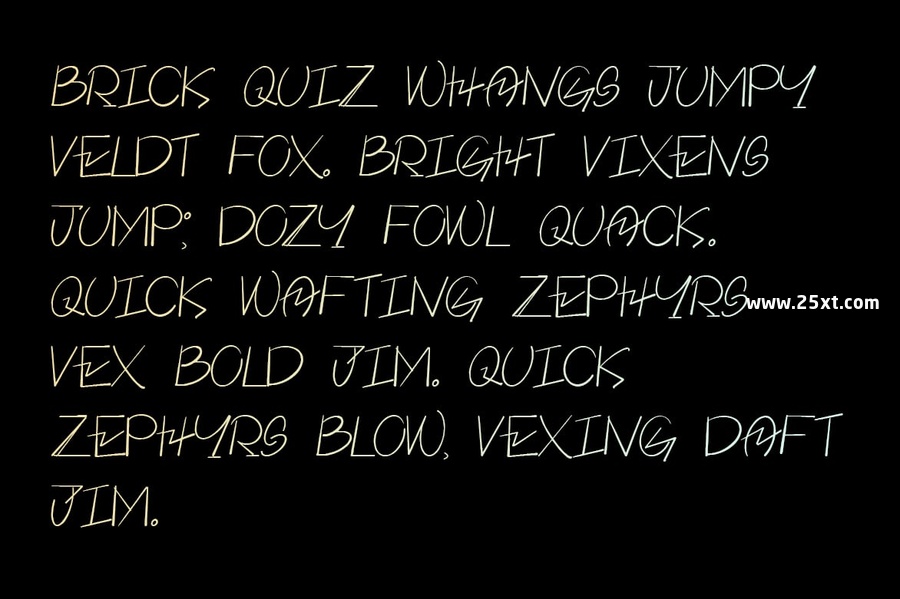 BRICK QUIZ WHANGS JUMPY
VELDT FOX. BRIGHT VIXENS
JUMP; DOZY FOWL QUACK.
QUICK WAFTING ZEPHYRS
www.25xt.com
VEX BOLD JIM. QUICK
ZEPHYRS BLOW, VEXING DAFT
JIM.